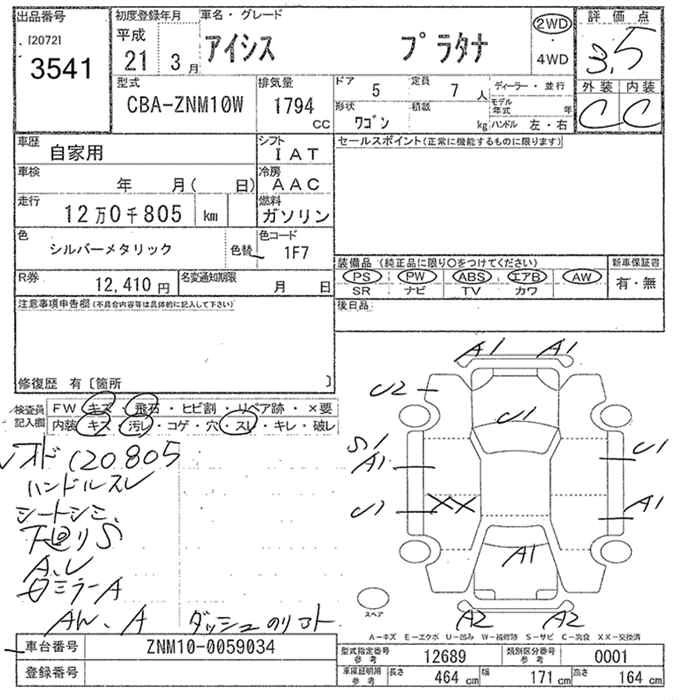 出品番号
120721
3541
初度登録年月
平成
21年 3月
車名・グレード
アイシス プラタナ
2WD
4WD
評価点
3.5
外装 内装
C C
型式
CBA-ZNM10W
排気量
1794 cc
ドア 5
定員 7人
形状 ワゴン
積載 kg
ディーラー・並行
モデル年式 年
ハンドル 左・右
車歴 自家用
シフト IAT
車検 年 月( 日)
冷房 AAC
走行 12万0千805 km
燃料 ガソリン
色 シルバーメタリック 色替
色コード 1F7
R券 12,410円
名変通知期限 月 日
セールスポイント(正常に機能するものに限ります)
装備品 (純正品に限り○をつけてください)
PS PW ABS エアB AW
SR ナビ TV カワ
新車保証書
有・無
後日品
注意事項申告欄(不具合内容等は具体的に記入して下さい)
修復歴 有〔箇所 〕
検査員記入欄
FW キズ・飛石・ヒビ割・リペア跡・×要
内装 キズ・汚レ・コゲ・穴・スレ・キレ・破レ
オド120805
ハンドルスレ
シートシミ、
下回りS
A、U
ミラーA
AW、A ダッシュのリフト
A1 A1
U2
U1
S1
A1
U1
U1
XX
A1
A1
A2 A2
スペア
A-キズ E-エクボ U-凹み W-補修跡 S-サビ C-腐食 XX-交換済
車台番号 ZNM10-0059034
登録番号
型式指定番号 参考 12689
類別区分番号 参考 0001
車庫証明用 参考
長さ 464 cm 幅 171 cm 高さ 164 cm